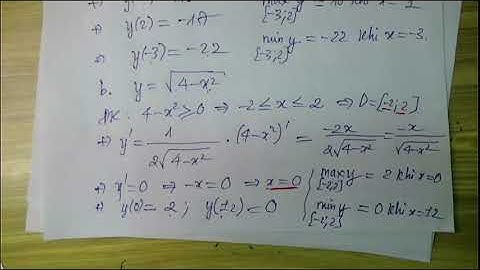 y(2) = -18
y(-3) = -22
min y = -22 khi x = -3.
[-3;2]
b. y = √(4-x²)
ĐK: 4-x² ≥ 0 ⇒ -2 ≤ x ≤ 2 ⇒ D = [-2;2]
+) y' = 1/(2√(4-x²)) · (4-x²)' = -2x/(2√(4-x²)) = -x/√(4-x²)
+) y' = 0 ⇒ -x = 0 ⇒ x = 0
+) y(0) = 2; y(±2) = 0
max y = 2 khi x = 0
[-2;2]
min y = 0 khi x = ±2
[-2;2]